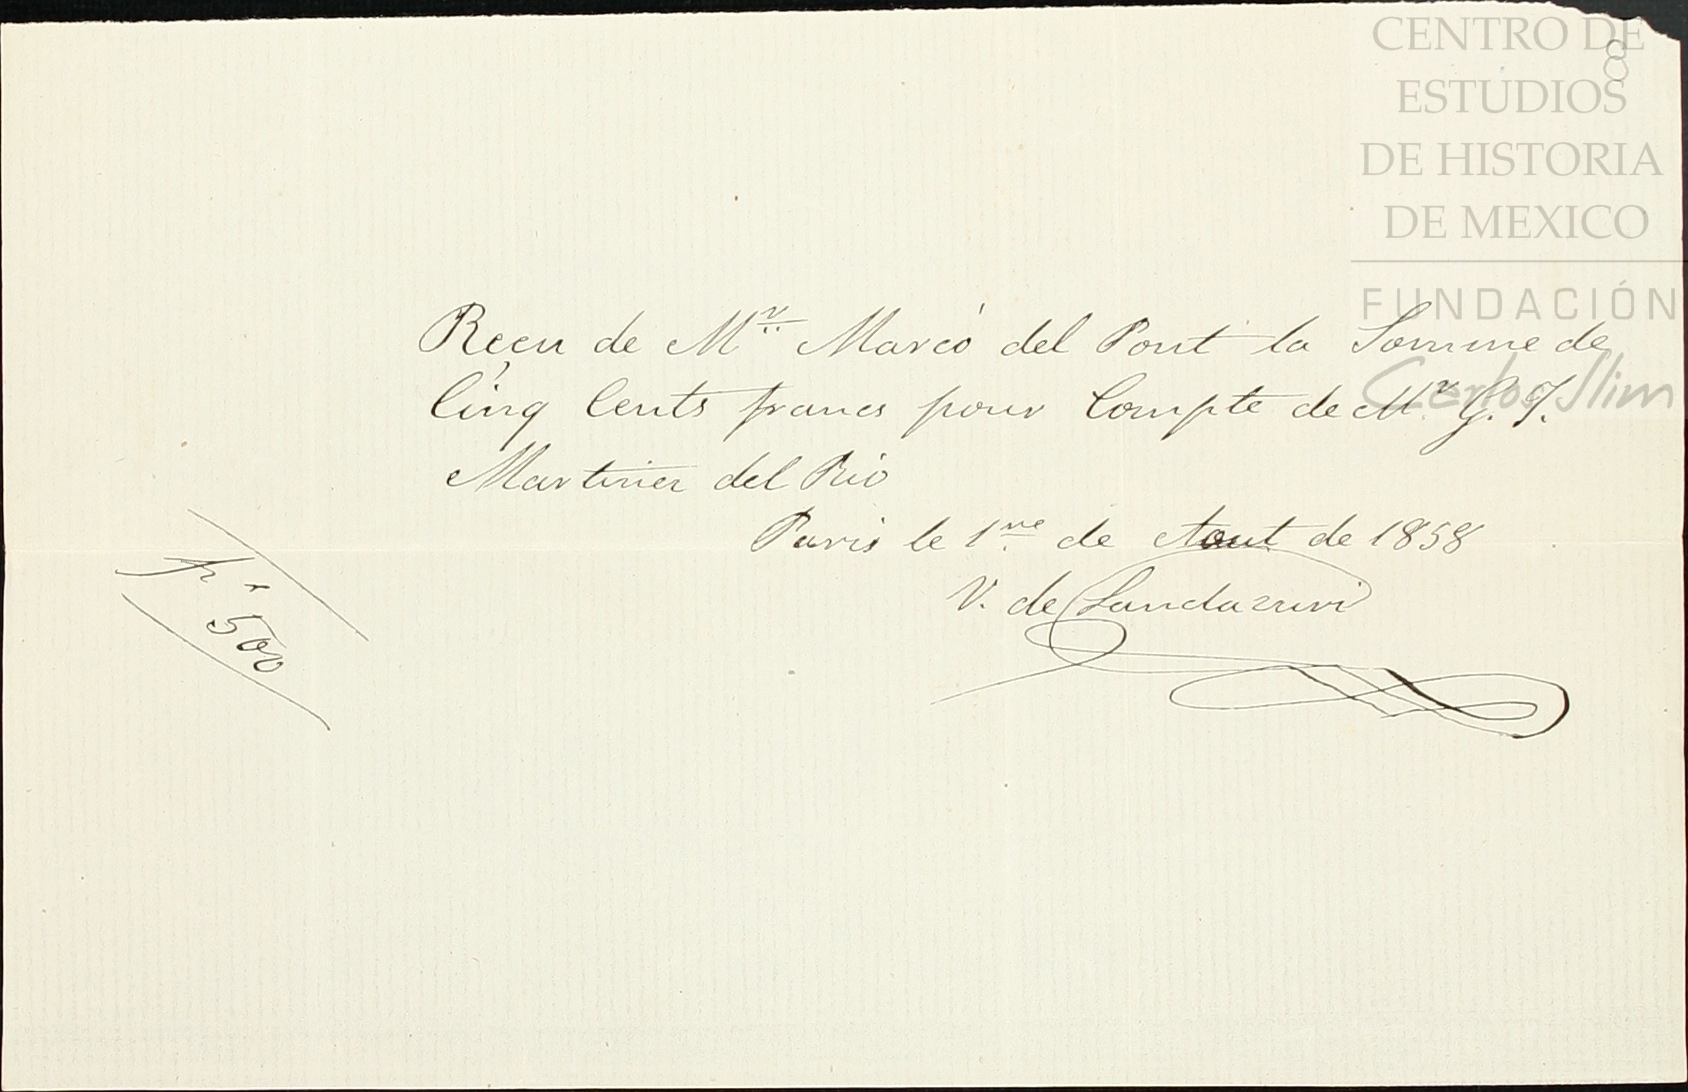 CENTRO DE
ESTUDIOS
DE HISTORIA
DE MEXICO
FUNDACIÓN
Carlos Slim
Reçu de Mr. Marcó del Pont la Somme de
Cinq Cents francs pour Compte de Mr. G. J.
Martinez del Rio
Paris le 1re. de Aout de 1858
V. de Landazuri
fr 500